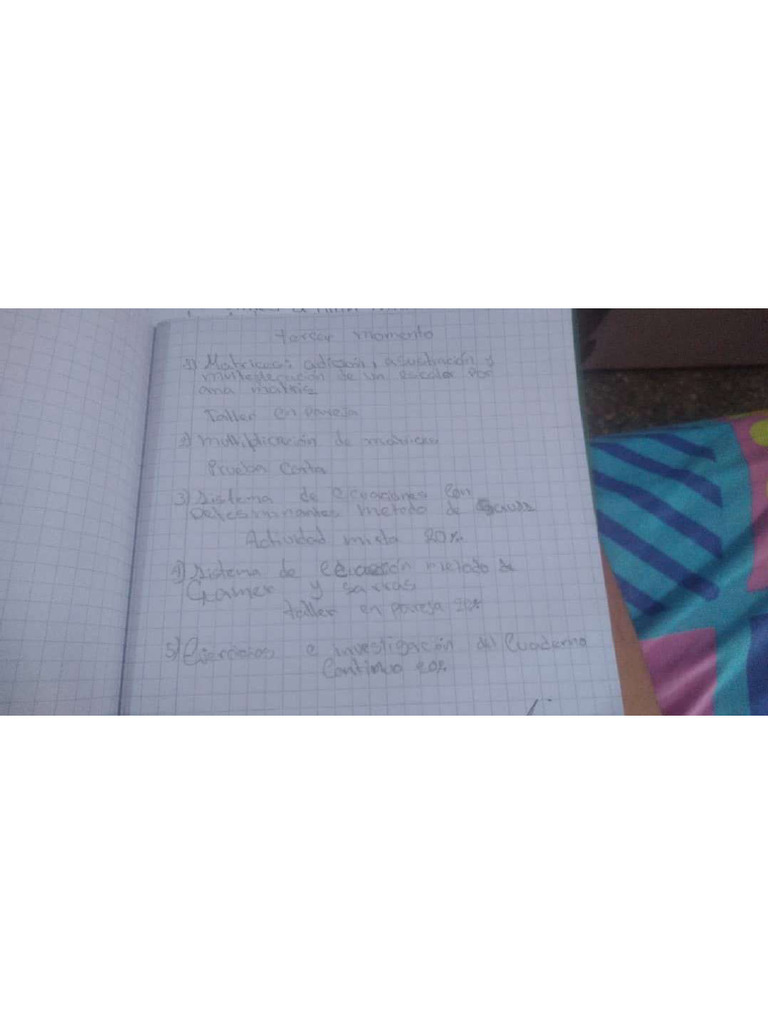 tercer momento
1) Matrices: adición, sustracción y
multiplicación de un escalar por
una matriz
Taller en pareja
2) Multiplicación de matrices
Prueba Corta
3) Sistema de ecuaciones con
Determinantes metodo de Gauss
Actividad mixta 20%
4) Sistema de ecuación metodo de
Cramer y sarrus
taller en pareja 20%
5) Ejercicios e investigación del Cuaderno
Continuo 20%